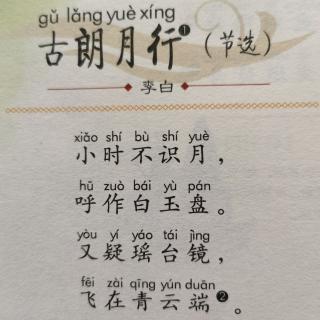 gǔ lǎng yuè xíng
古朗月行❶（节选）
李白
xiǎo shí bù shí yuè
小时不识月，
hū zuò bái yù pán
呼作白玉盘。
yòu yí yáo tái jìng
又疑瑶台镜，
fēi zài qīng yún duān
飞在青云端❷。